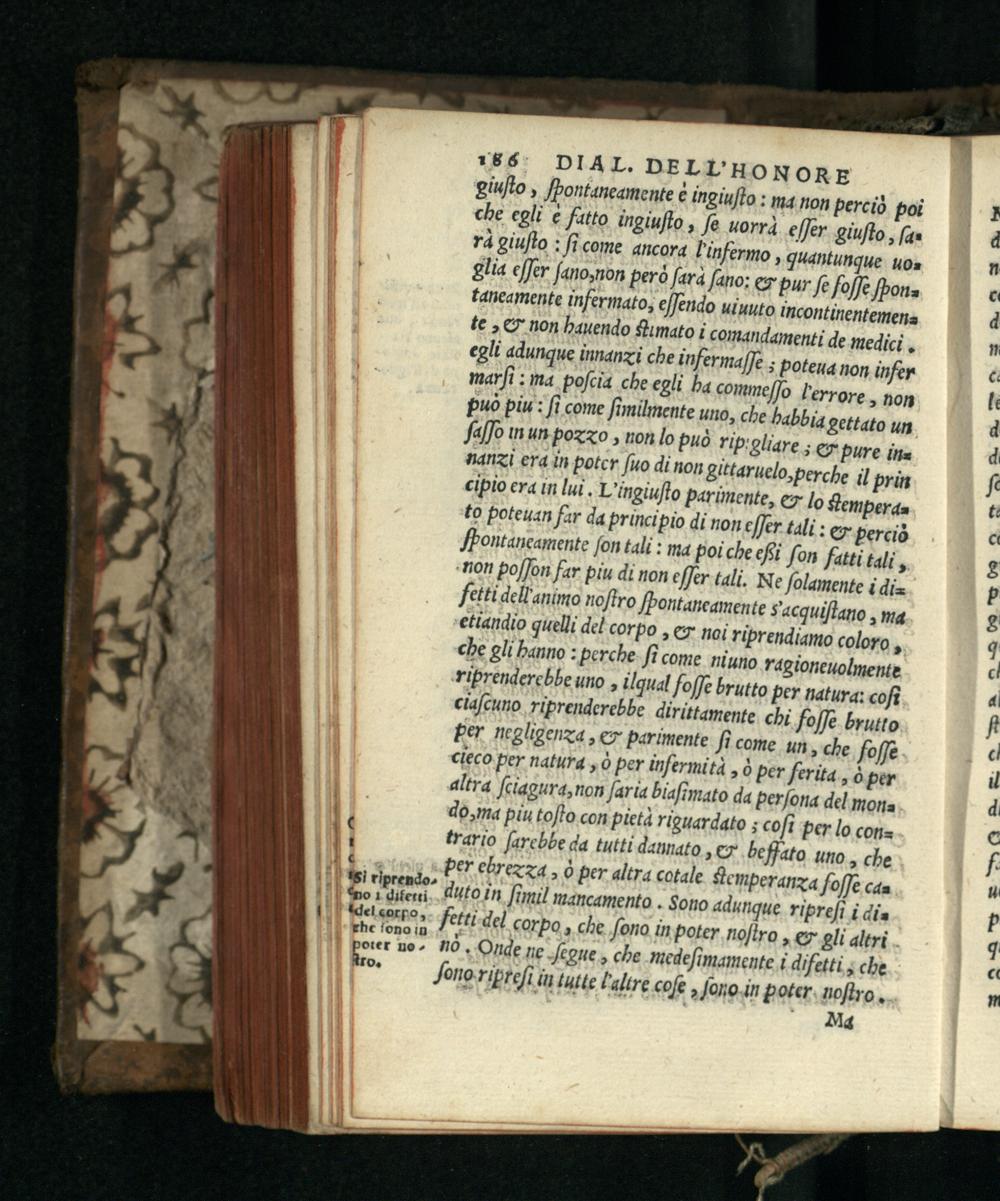 186 DIAL. DELL'HONORE
giuſto, ſpontaneamente è ingiuſto: ma non perciò poi
che egli è fatto ingiuſto, ſe uorrà eſſer giuſto, ſa=
rà giuſto: ſi come ancora l'infermo, quantunque uo=
glia eſſer ſano, non però ſarà ſano: & pur ſe foſſe ſpon=
taneamente infermato, eſſendo uiuuto incontinentemen=
te, & non hauendo ſtimato i comandamenti de medici.
egli adunque innanzi che infermaſſe; poteua non infer
marſi: ma poſcia che egli ha commeſſo l'errore, non
può piu: ſi come ſimilmente uno, che habbia gettato un
ſaſſo in un pozzo, non lo può ripigliare; & pure in=
nanzi era in poter ſuo di non gittaruelo, perche il prin
cipio era in lui. L'ingiuſto parimente, & lo ſtempera=
to poteuan far da principio di non eſſer tali: & perciò
ſpontaneamente ſon tali: ma poi che eßi ſon fatti tali,
non poſſon far piu di non eſſer tali. Ne ſolamente i di=
fetti dell'animo noſtro ſpontaneamente s'acquiſtano, ma
etiandio quelli del corpo, & noi riprendiamo coloro,
che gli hanno: perche ſi come niuno ragioneuolmente
riprenderebbe uno, ilqual foſſe brutto per natura: coſi
ciaſcuno riprenderebbe dirittamente chi foſſe brutto
per negligenza, & parimente ſi come un, che foſſe
cieco per natura, ò per infermità, ò per ferita, ò per
altra ſciagura, non ſaria biaſimato da perſona del mon=
do, ma piu toſto con pietà riguardato; coſi per lo con=
trario ſarebbe da tutti dannato, & beffato uno, che
per ebrezza, ò per altra cotale ſtemperanza foſſe ca=
duto in ſimil mancamento. Sono adunque ripreſi i di=
fetti del corpo, che ſono in poter noſtro, & gli altri
nò. Onde ne ſegue, che medeſimamente i difetti, che
ſono ripreſi in tutte l'altre coſe, ſono in poter noſtro.
Ma
Si riprendo-
no i difetti
del corpo,
che ſono in
poter no-
ſtro.